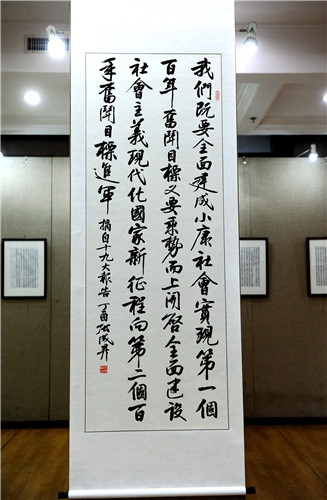 我們既要全面建成小康社會實現第一個
百年奮鬪目標又要乘勢而上開啓全面建設
社會主義現代化國家新征程向第二個百
年奮鬪目標進軍 摘自十九大報告 丁酉